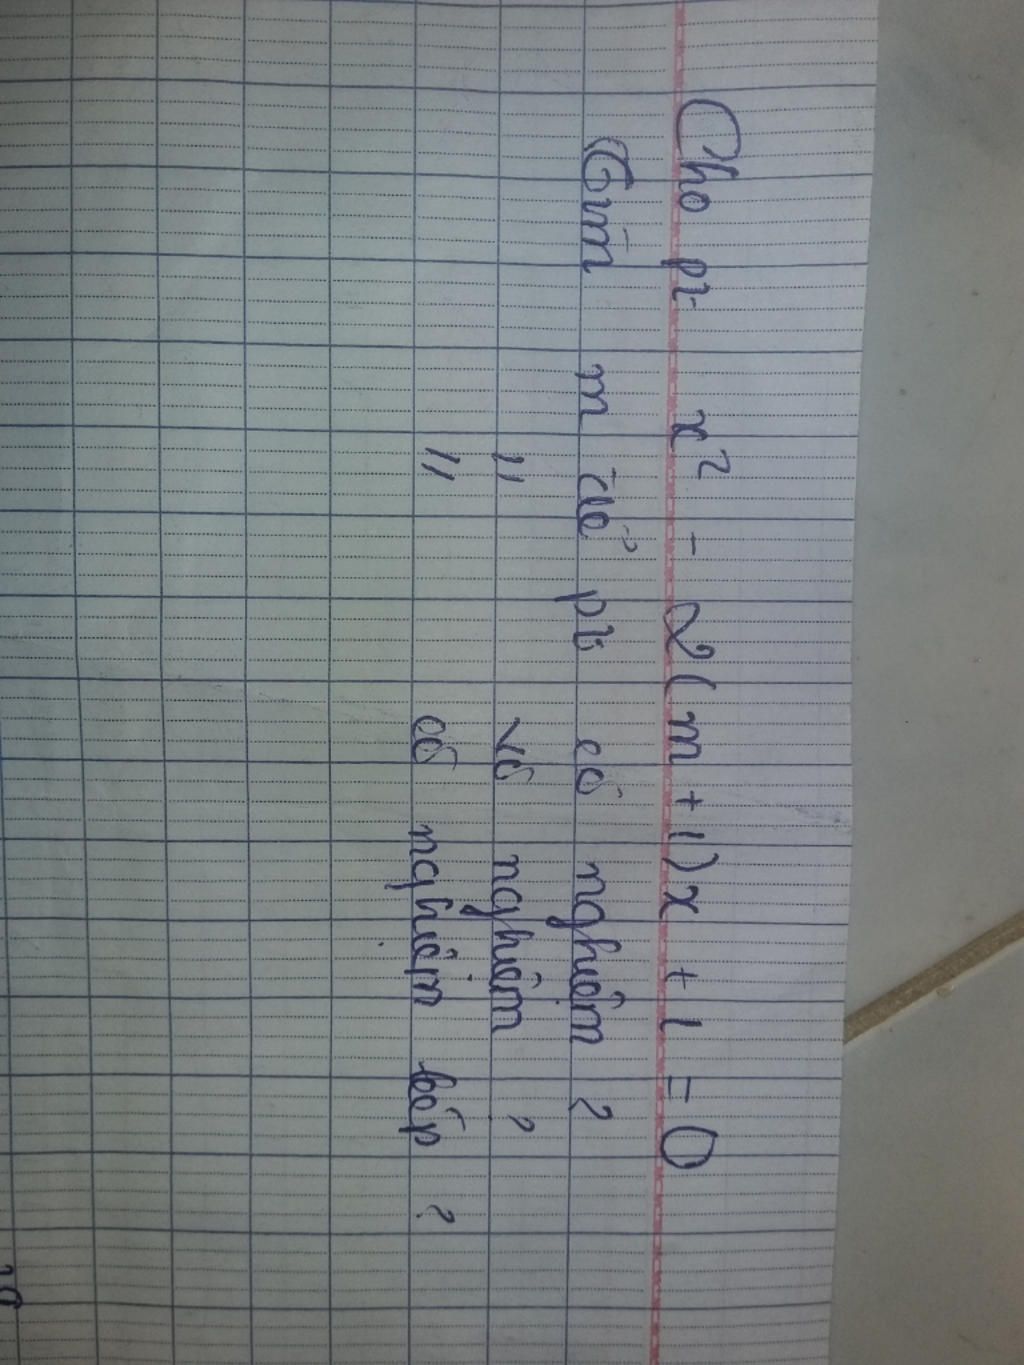 Cho pt x² - 2(m+1)x + 1 = 0
Tìm m để pt có nghiệm ?
" vô nghiệm ?
" có nghiệm kép ?